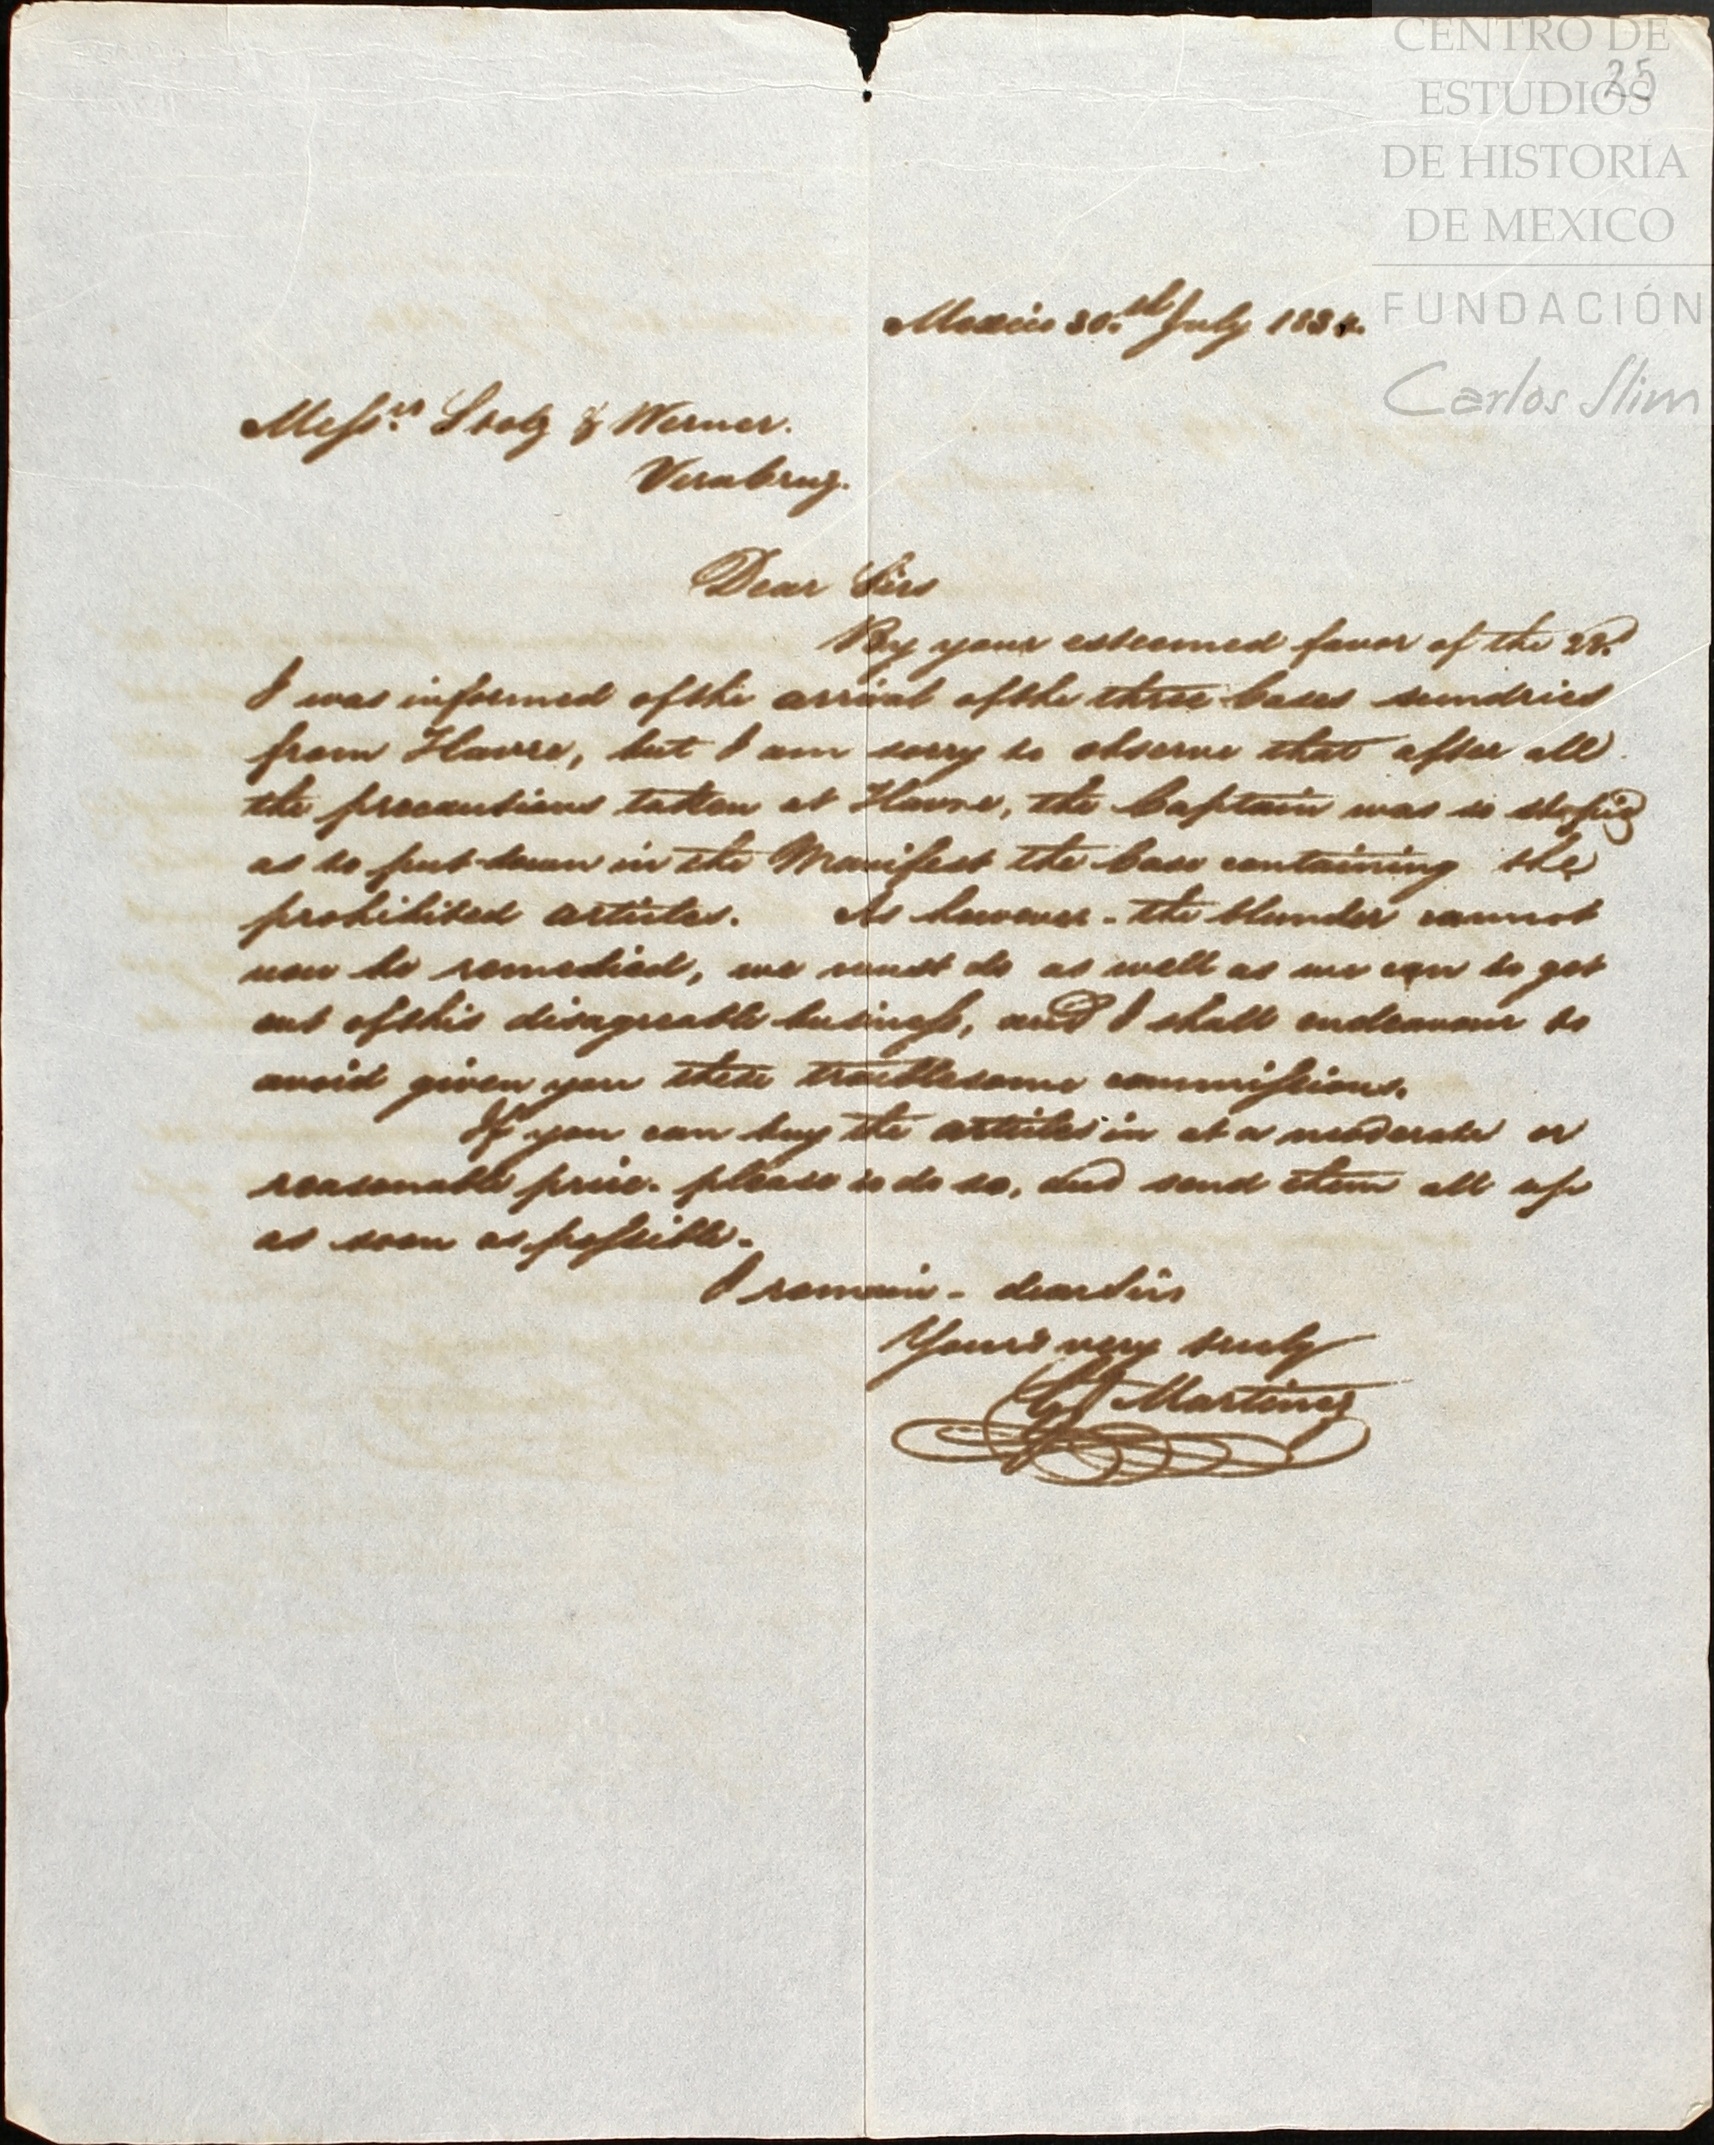 CENTRO DE
ESTUDIOS
25
DE HISTORIA
DE MEXICO
FUNDACIÓN
Carlos Slim
Mexico 30.th July 1834.
Messrs. Stolz & Werner.
VeraCruz.
Dear Sirs
By your esteemed favor of the 23d.
I was informed of the arrival of the three Cases sundries
from Havre, but I am sorry to observe that after all
the precautions taken at Havre, the Captain was so stupid
as to put down in the Manifest the Case containing the
prohibited articles. As however - the blunder cannot
now be remedied, we must do as well as we can to get
out of this disagreable business, and I shall endeavour to
avoid given you these troublesome commissions.
If you can buy the articles in at a moderate or
reasonable price. please to do so, and send them all up
as soon as possible.
I remain - dear Sirs
Yours very truly
Martinez